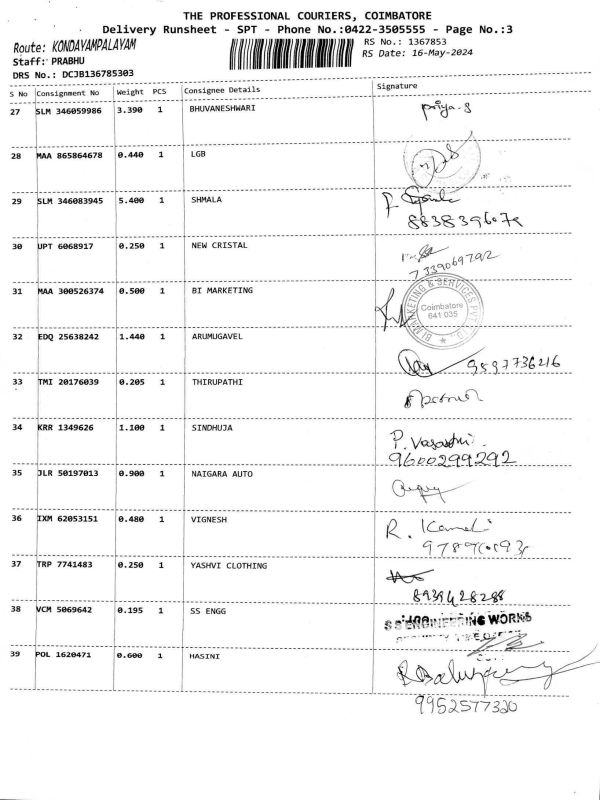 THE PROFESSIONAL COURIERS, COIMBATORE
Delivery Runsheet - SPT - Phone No.:0422-3505555 - Page No.:3
Route: KONDAYAMPALAYAM
RS No.: 1367853
Staff: PRABHU
RS Date: 16-May-2024
DRS No.: DCJB136785303
S No Consignment No Weight PCS Consignee Details Signature
27 SLM 346059986 3.390 1 BHUVANESHWARI Priya.S
28 MAA 865864678 0.440 1 LGB
29 SLM 346083945 5.400 1 SHMALA
30 UPT 6068917 0.250 1 NEW CRISTAL
7339069792
31 MAA 300526374 0.500 1 BI MARKETING
BI MARKETING & SERVICES PVT
Coimbatore
641 035
32 EDQ 25638242 1.440 1 ARUMUGAVEL
9597736216
33 TMI 20176039 0.205 1 THIRUPATHI
34 KRR 1349626 1.100 1 SINDHUJA
9600299292
35 JLR 50197013 0.900 1 NAIGARA AUTO
36 IXM 62053151 0.480 1 VIGNESH
37 TRP 7741483 0.250 1 YASHVI CLOTHING
8939428288
38 VCM 5069642 0.195 1 SS ENGG
S S ENGINEERING WORKS
39 POL 1620471 0.600 1 HASINI
9952577320